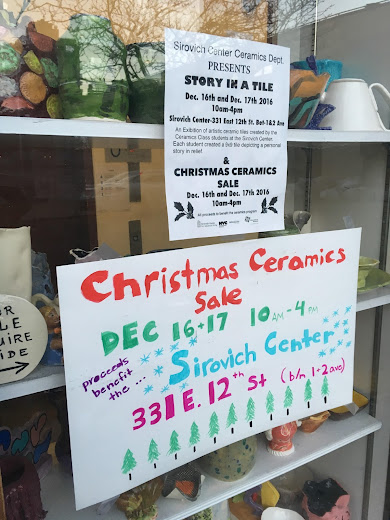 Sirovich Center Ceramics Dept.
PRESENTS
STORY IN A TILE
Dec. 16th and Dec. 17th 2016
10am-4pm
Sirovich Center-331 East 12th St. Bet-1&2 Ave
An Exibition of artistic ceramic tiles created by the
Ceramics Class students at the Sirovich Center.
Each student created a 8x8 tile depicting a personal
story in relief.
&
CHRISTMAS CERAMICS
SALE
Dec. 16th and Dec. 17th 2016
10am-4pm
All proceeds to benefit the ceramic program
NYC
Christmas Ceramics
Sale
DEC 16+17 10AM-4PM
proceeds
benefit
the ...
Sirovich Center
331 E. 12th St (b/n 1+2 ave)